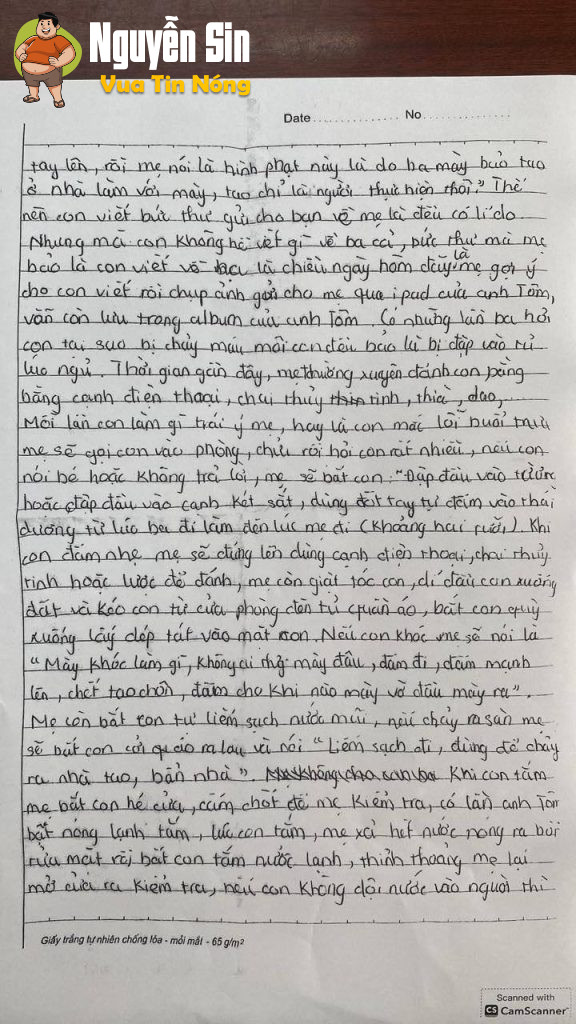 Nguyễn Sin
Vua Tin Nóng
Date............... No...............
tay lên, rồi mẹ nói là hình phạt này là do ba mày bảo tao
ở nhà làm với mày, tao chỉ là người thực hiện thôi." Thế
nên con viết bức thư gửi cho bạn về mẹ là đều có lí do.
Nhưng mà con không hề viết gì về ba cả, bức thư mà mẹ
bảo là con viết về ba là chiều ngày hôm đấy là mẹ gợi ý
cho con viết rồi chụp ảnh gửi cho mẹ qua ipad của anh Tôm,
vẫn còn lưu trong album của anh Tôm. Có những lần ba hỏi
con tại sao bị chảy máu môi con đều bảo là bị đập vào tủ
lúc ngủ. Thời gian gần đây, mẹ thường xuyên đánh con bằng
bằng cạnh điện thoại, chai thủy tinh, thìa, dao,
Mỗi lần con làm gì trái ý mẹ, hay là con mắc lỗi buổi trưa
mẹ sẽ gọi con vào phòng, chửi rồi hỏi con rất nhiều, nếu con
nói bé hoặc không trả lời, mẹ sẽ bắt con: "Đập đầu vào tường
hoặc đập đầu vào cạnh két sắt, dùng tay tự đấm vào thái
dương từ lúc ba đi làm đến lúc mẹ đi (khoảng hai rưỡi). Khi
con đấm nhẹ mẹ sẽ đứng lên dùng cạnh điện thoại, chai thủy
tinh hoặc lược để đánh, mẹ còn giật tóc con, dí đầu con xuống
đất và kéo con từ cửa phòng đến tủ quần áo, bắt con quỳ
xuống lấy dép tát vào mặt con. Nếu con khóc mẹ sẽ nói là
"Mày khóc làm gì, không ai mày đâu, đấm đi, đấm mạnh
lên, chết tao chôn, đấm cho khi nào mày vỡ đầu mày ra".
Mẹ còn bắt con tự liếm sạch nước mũi, nếu chảy ra sàn mẹ
sẽ bắt con cởi quần áo ra lau và nói "Liếm sạch đi, đừng để chảy
ra nhà tao, bẩn nhà". Khi con tắm
mẹ bắt con hé cửa, cấm chốt để mẹ kiểm tra, có lần anh Tôm
bật nóng lạnh tắm, lúc con tắm, mẹ xả hết nước nóng ra bồn
rửa mặt rồi bắt con tắm nước lạnh, thỉnh thoảng mẹ lại
mở cửa ra kiểm tra, nếu con không dội nước vào người thì
Giấy trắng tự nhiên chống lóa - mỏi mắt - 65 g/m²
Scanned with
CS CamScanner